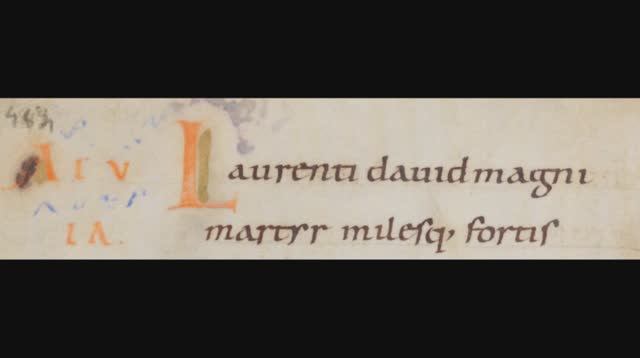 Laurenti dauid magni
martyr milesq, fortis